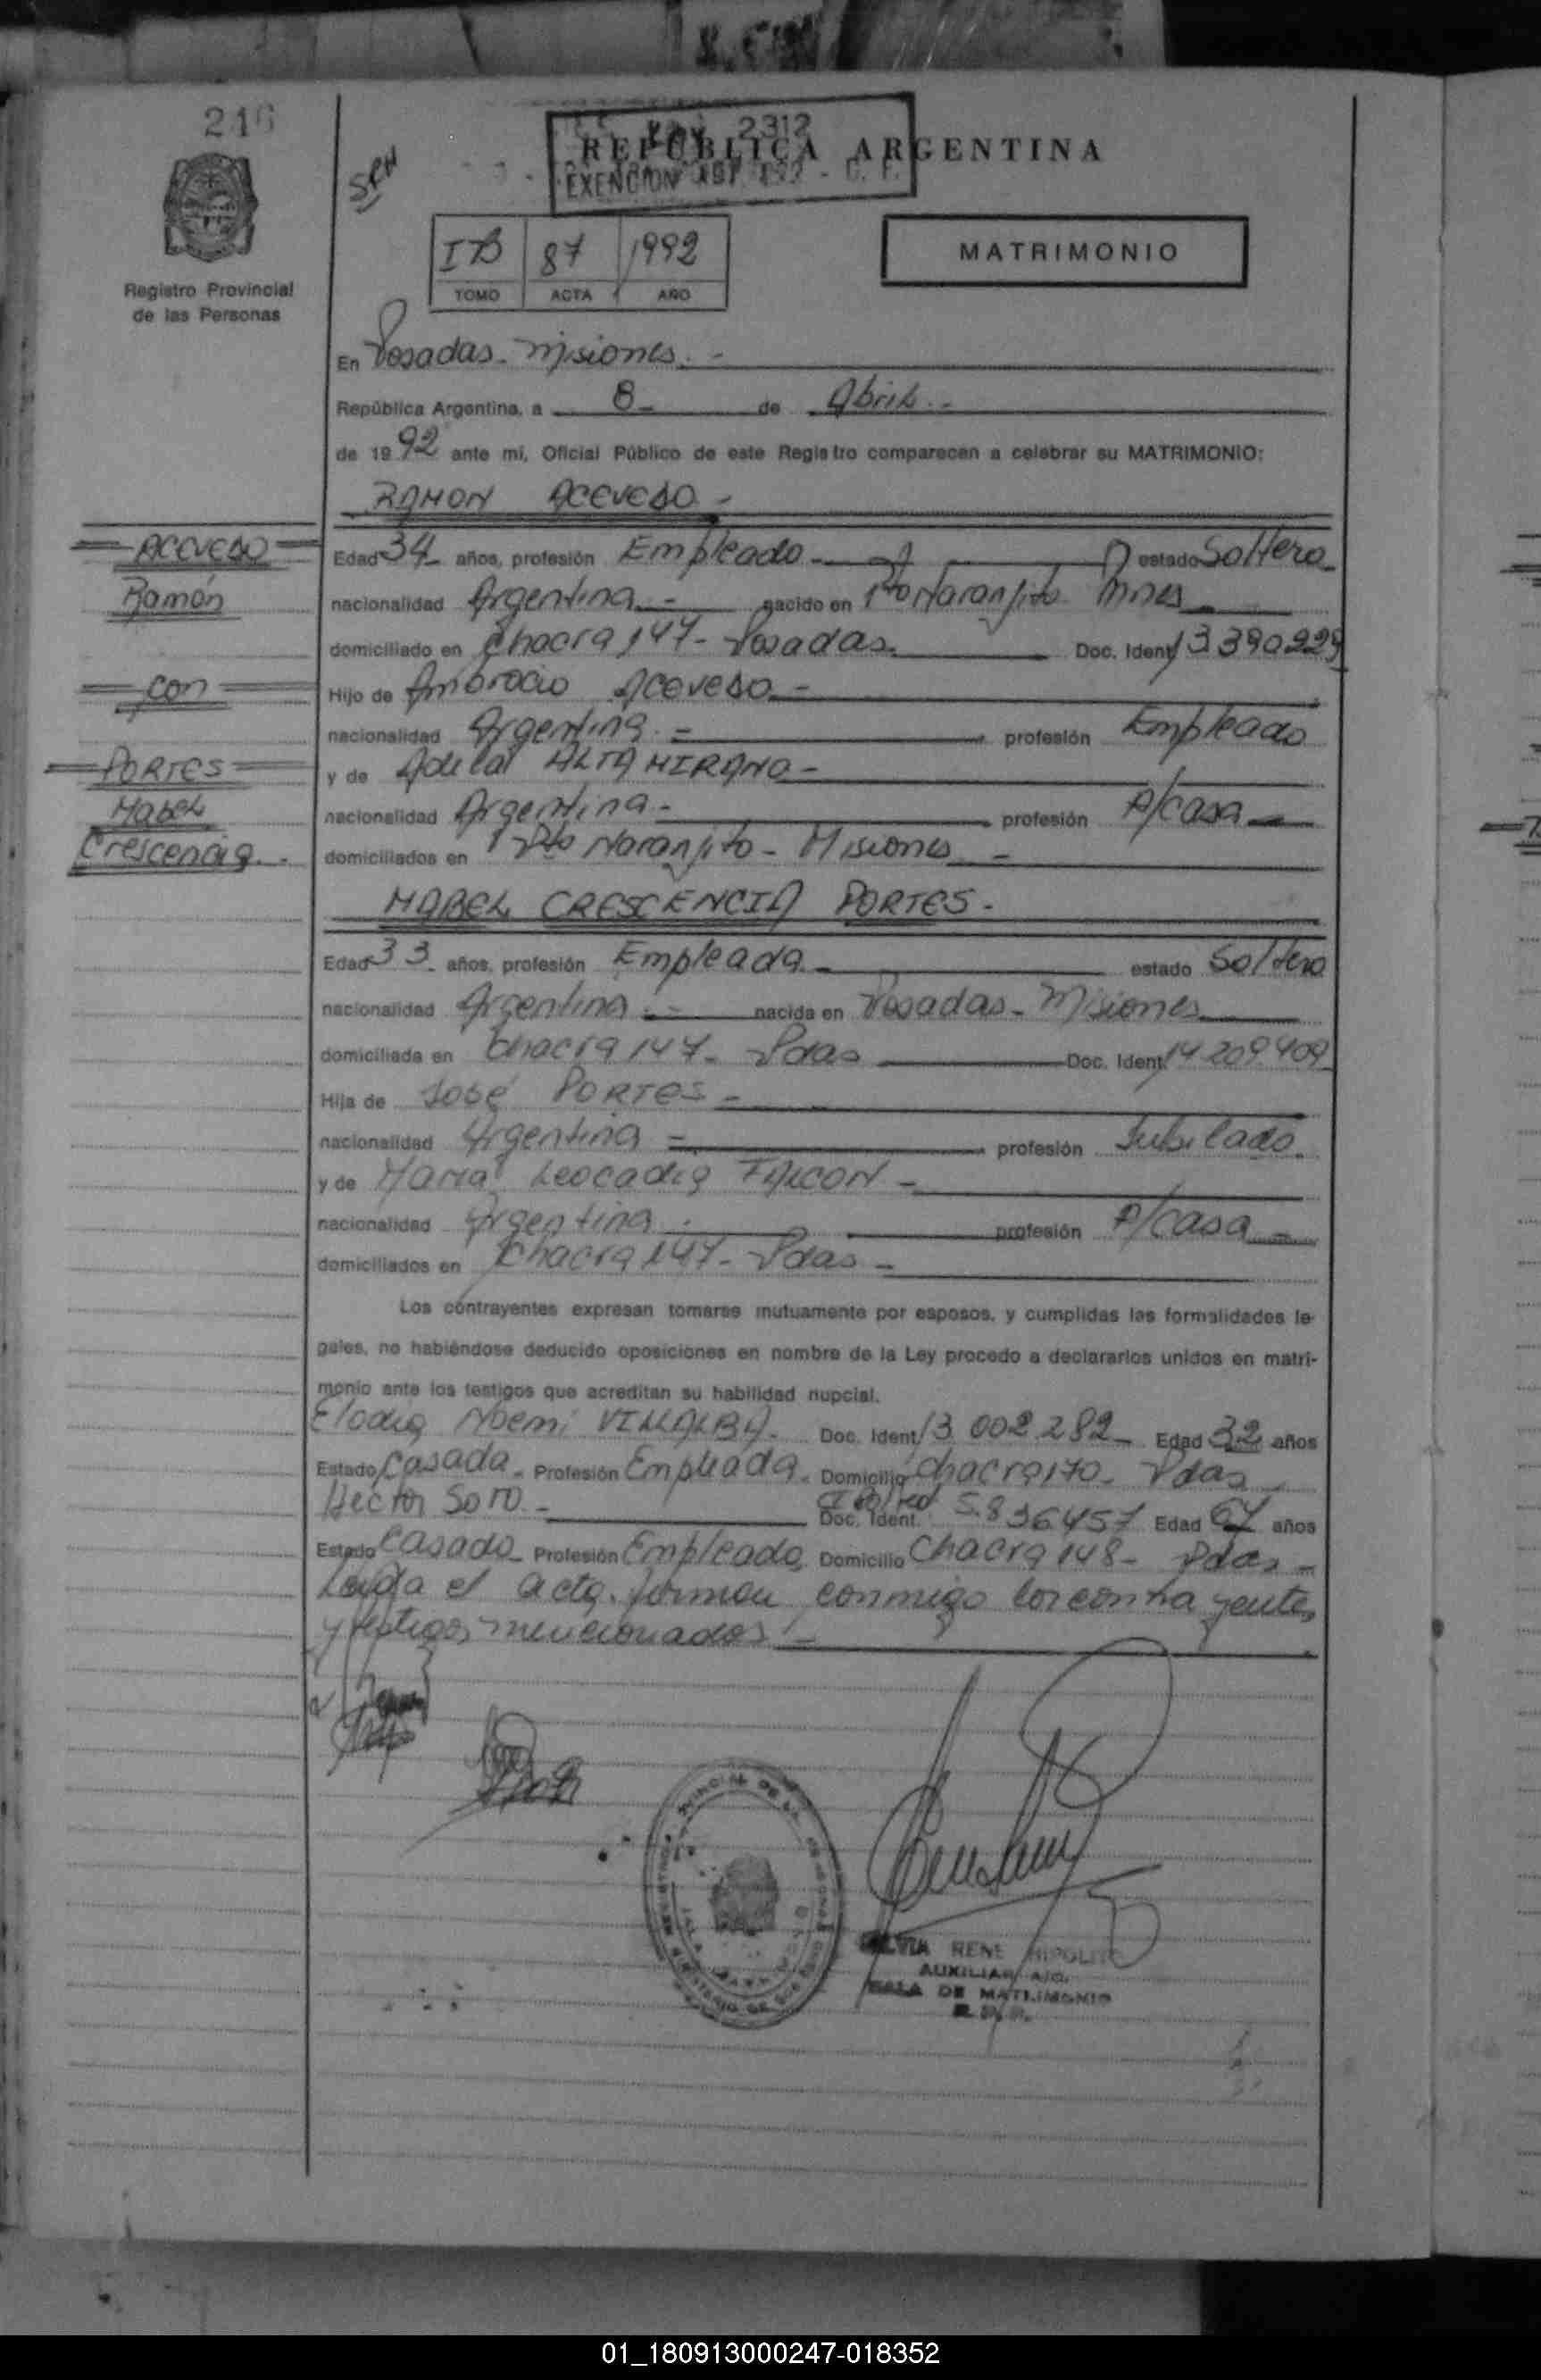 216
SRH
2312
REPUBLICA ARGENTINA
EXENCION
IB 87 1992
TOMO ACTA AÑO
MATRIMONIO
Registro Provincial
de las Personas
En Posadas - Misiones. -
República Argentina, a 8 - de Abril. -
de 19 92 ante mi, Oficial Público de este Registro comparecen a celebrar su MATRIMONIO:
RAMON ACEVEDO -
ACEVEDO
Ramón
con
PORTES
Mabel
Crescencia. -
Edad 34 - años, profesión Empleado - estado Soltero -
nacionalidad Argentina - nacido en Pto Naranjito Mnes -
domiciliado en Chacra 147 - Posadas. Doc. Ident. 13390229
Hijo de Ambrocio Acevedo -
nacionalidad Argentina - profesión Empleado
y de Adela ALTAMIRANO -
nacionalidad Argentina - profesión A/casa -
domiciliados en Pto Naranjito - Misiones -
MABEL CRESCENCIA PORTES -
Edad 33 - años, profesión Empleada - estado Soltera
nacionalidad Argentina - nacida en Posadas - Misiones
domiciliada en Chacra 147 - Pdas Doc. Ident. 14.209.409
Hija de José PORTES -
nacionalidad Argentina - profesión Jubilado.
y de María Leocadia FALCON -
nacionalidad Argentina. profesión A/casa -
domiciliados en Chacra 147 - Pdas -
Los contrayentes expresan tomarse mutuamente por esposos, y cumplidas las formalidades le-
gales, no habiéndose deducido oposiciones en nombre de la Ley procedo a declararlos unidos en matri-
monio ante los testigos que acreditan su habilidad nupcial.
Elodia Noemi VILLALBA - Doc. Ident. 13.002.282 - Edad 32 años
Estado Casada - Profesión Empleada. Domicilio Chacra 170 - Pdas
Héctor Soto - Doc. Ident. 5.836457 Edad 67 años
Estado Casado - Profesión Empleado, Domicilio Chacra 148 - Pdas -
Leída el acta, firman conmigo los contrayentes
y testigos mencionados -
SILVIA RENE HIPOLITO
AUXILIAR
SALA DE MATRIMONIO
01_180913000247-018352